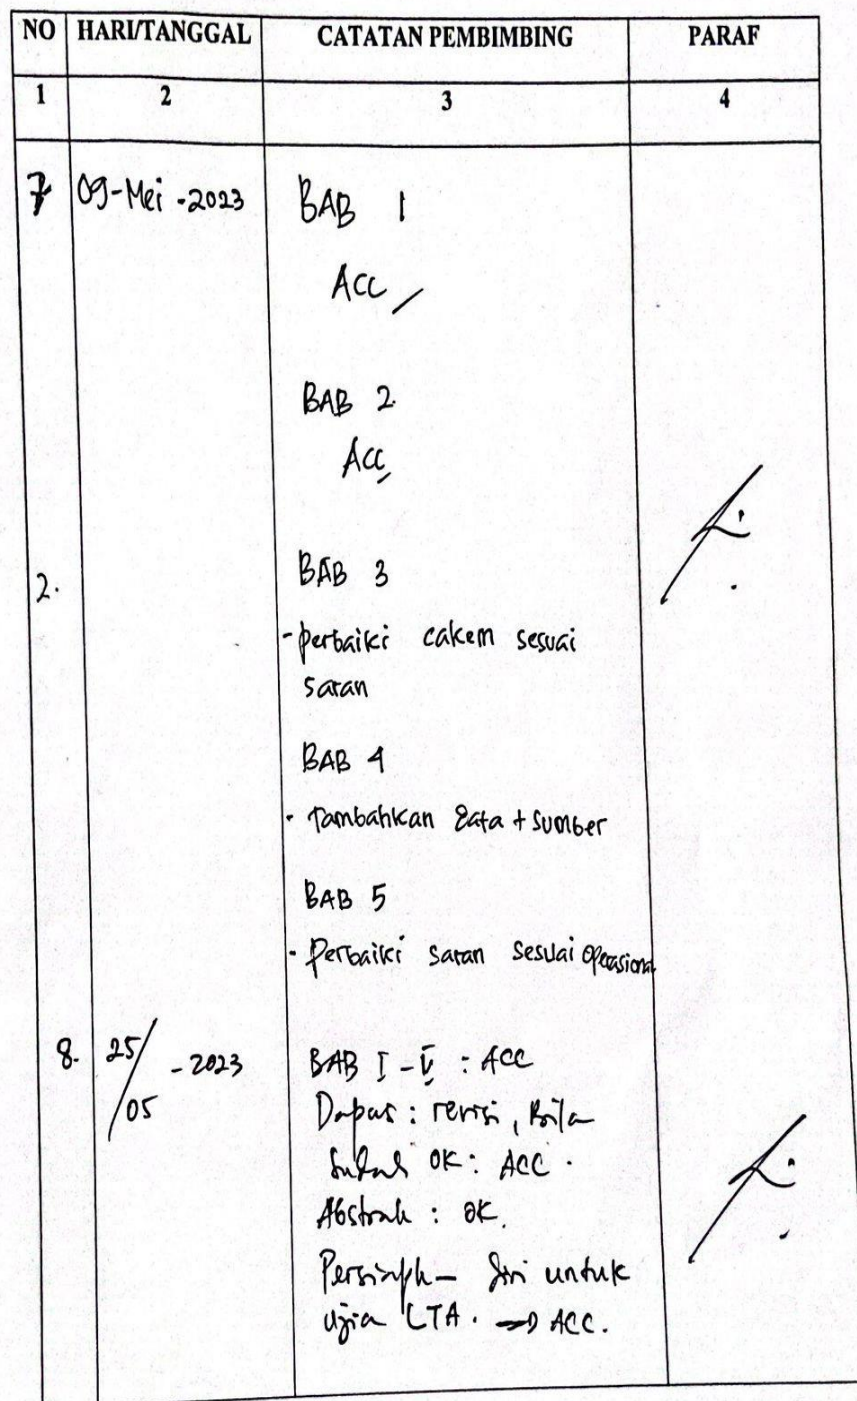 NO HARI/TANGGAL CATATAN PEMBIMBING PARAF
1 2 3 4
7 09-Mei-2023 BAB 1
ACC
BAB 2
ACC
2. BAB 3
- perbaiki cakem sesuai
saran
BAB 4
- Tambahkan data + sumber
BAB 5
- Perbaiki saran sesuai operasional
8. 25/05 - 2023 BAB I - V : ACC
Dapus : revisi, Bila
sudah OK : ACC.
Abstrak : OK.
diri untuk
LTA. → ACC.